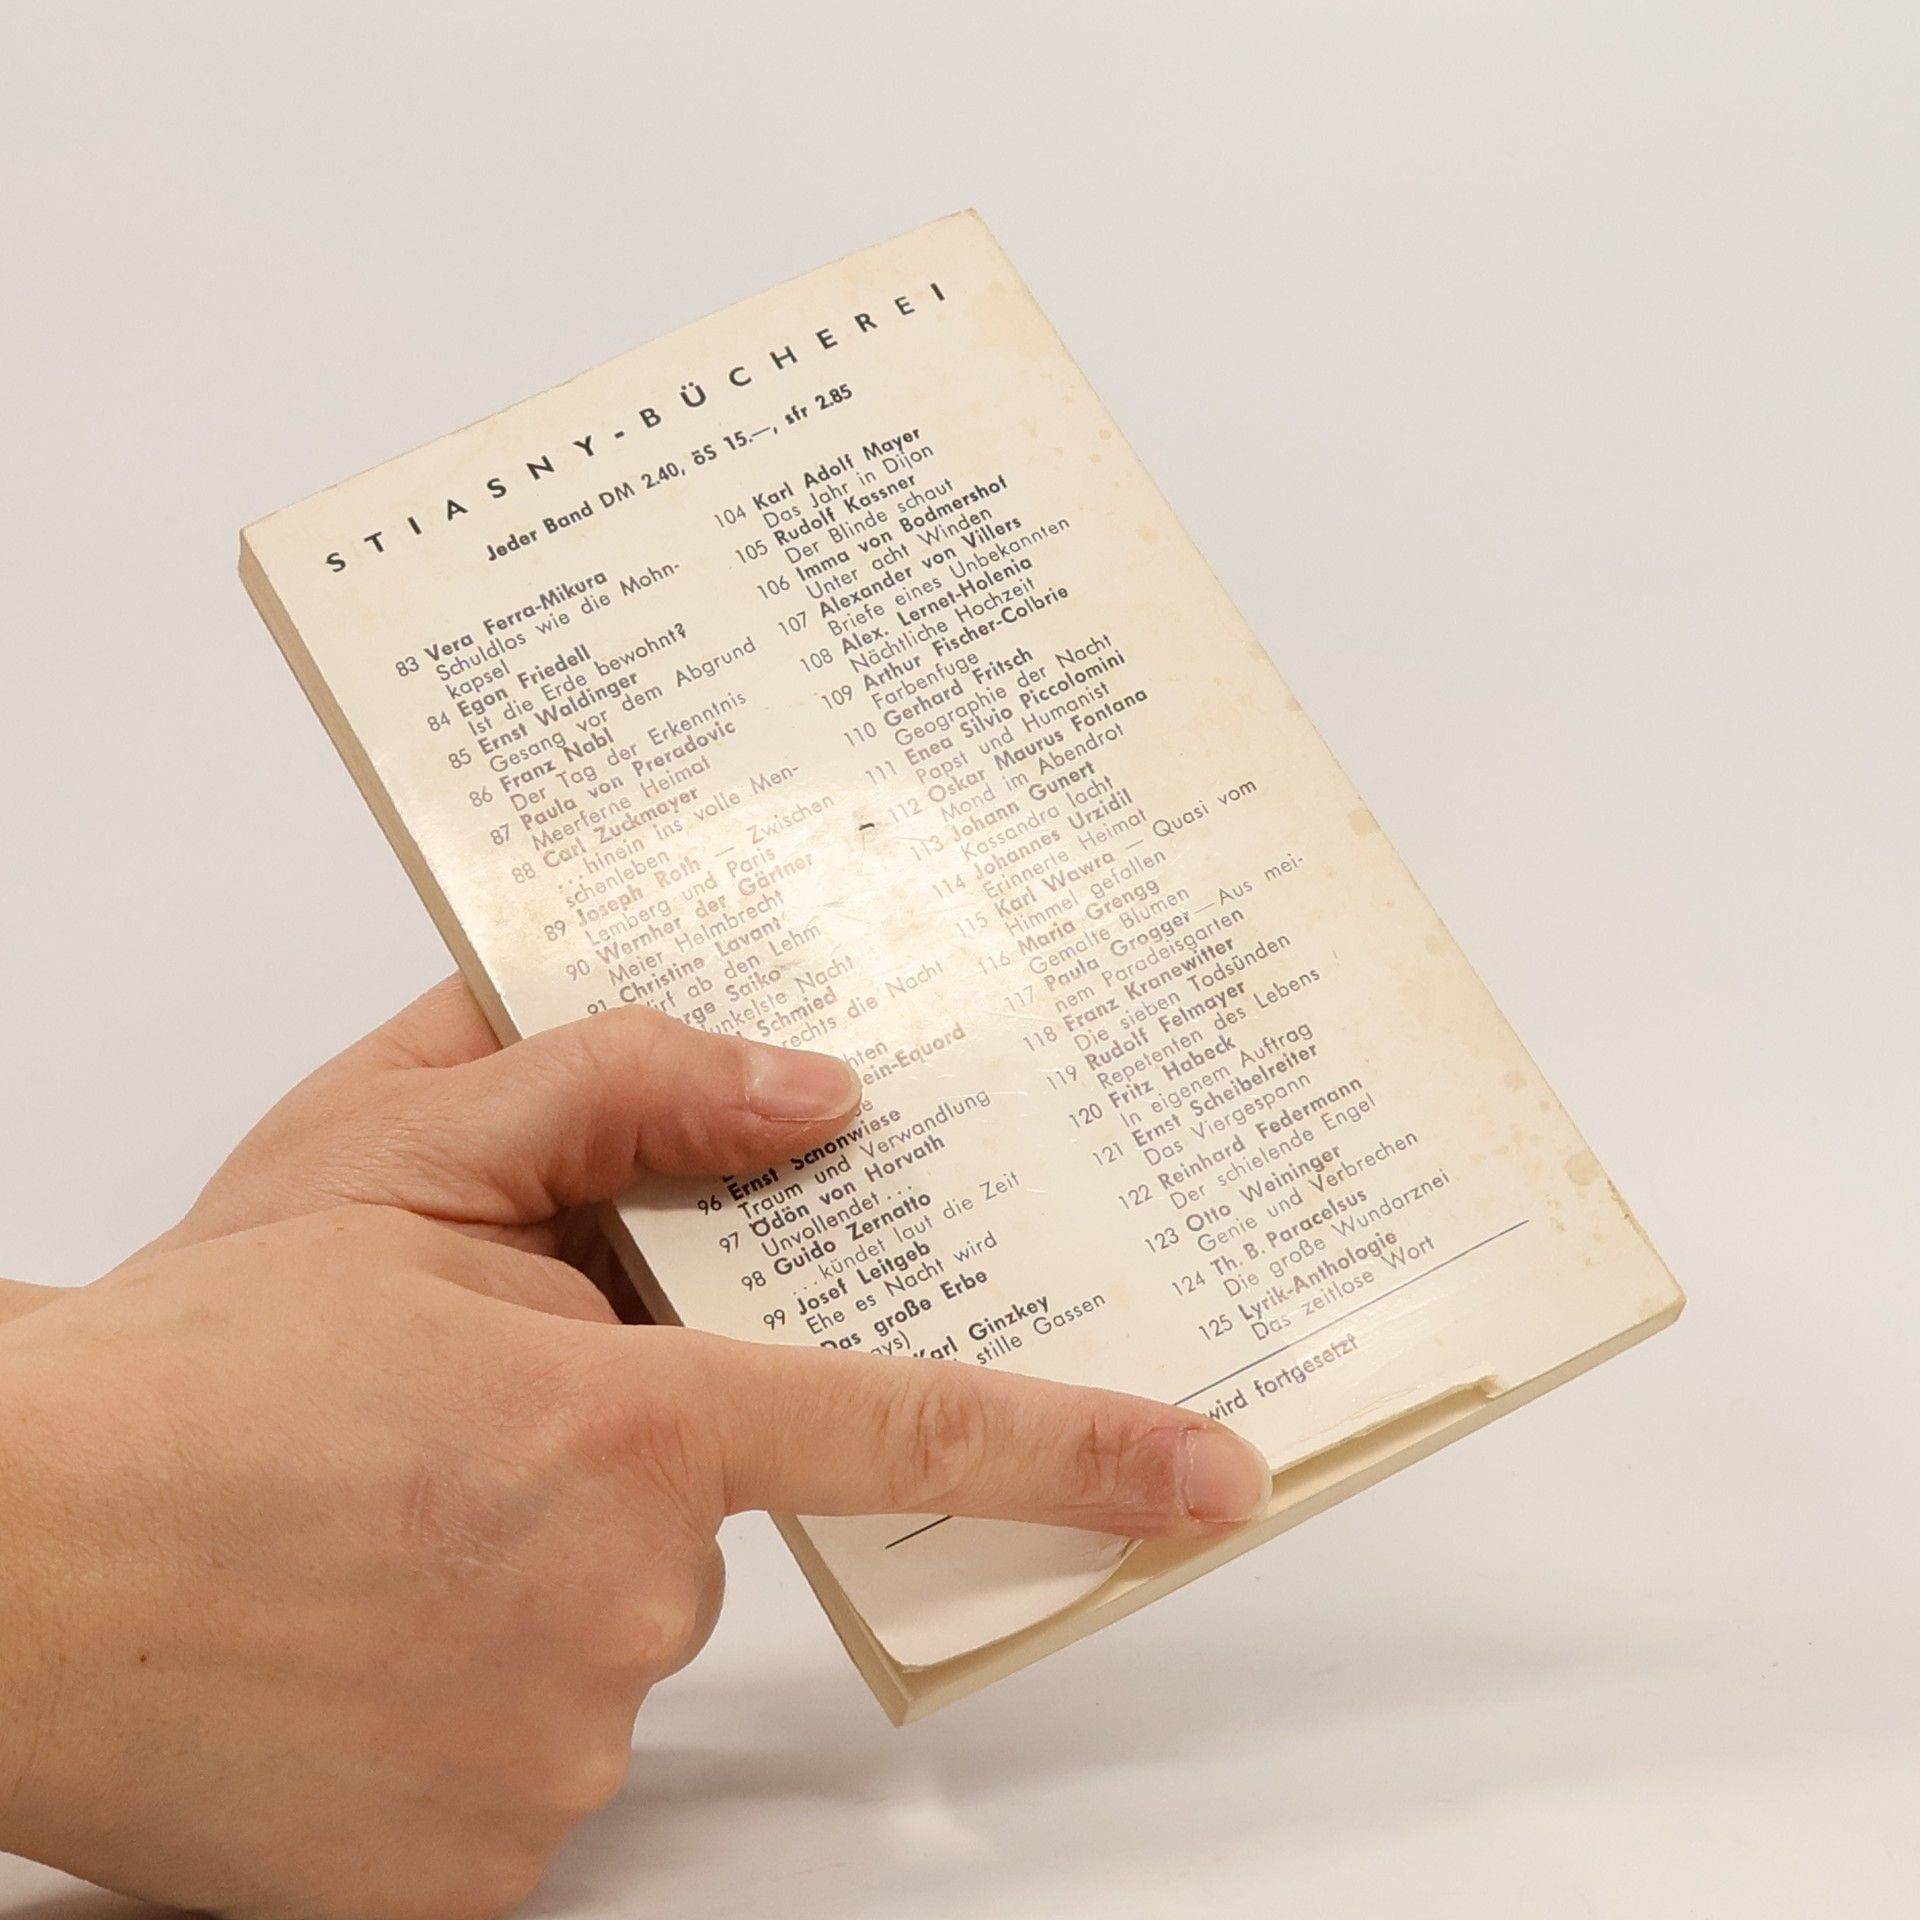 STIASNY-BÜCHEREI
Jeder Band DM 2.40, öS 15.—, sfr 2.85
83 Vera Ferra-Mikura
Schuldlos wie die Mohn-
kapsel
84 Egon Friedell
Ist die Erde bewohnt?
85 Ernst Waldinger
Gesang vor dem Abgrund
86 Franz Nabl
Der Tag der Erkenntnis
87 Paula von Preradovic
Meerferne Heimat
88 Carl Zuckmayer
...hinein ins volle Men-
schenleben
89 Joseph Roth — Zwischen
Lemberg und Paris
90 Wernher der Gärtner
Meier Helmbrecht
91 Christine Lavant
ab den Lehm
Saiko
Nacht
Schmied
rechts die Nacht
ein-Equord
96 Ernst Schönwiese
Traum und Verwandlung
97 Ödön von Horvath
Unvollendet...
98 Guido Zernatto
...kündet laut die Zeit
99 Josef Leitgeb
Ehe es Nacht wird
Das große Erbe
Karl Ginzkey
stille Gassen
104 Karl Adolf Mayer
Das Jahr in Dijon
105 Rudolf Kassner
Der Blinde schaut
106 Imma von Bodmershof
Unter acht Winden
107 Alexander von Villers
Briefe eines Unbekannten
108 Alex. Lernet-Holenia
Nächtliche Hochzeit
109 Arthur Fischer-Colbrie
Farbenfuge
110 Gerhard Fritsch
Geographie der Nacht
111 Enea Silvio Piccolomini
Papst und Humanist
112 Oskar Maurus Fontana
Mond im Abendrot
113 Johann Gunert
Kassandra lacht
114 Johannes Urzidil
Erinnerte Heimat
115 Karl Wawra — Quasi vom
Himmel gefallen
116 Maria Grengg
Gemalte Blumen
117 Paula Grogger — Aus mei-
nem Paradeisgarten
118 Franz Kranewitter
Die sieben Todsünden
119 Rudolf Felmayer
Repetenten des Lebens
120 Fritz Habeck
In eigenem Auftrag
121 Ernst Scheibelreiter
Das Viergespann
122 Reinhard Federmann
Der schielende Engel
123 Otto Weininger
Genie und Verbrechen
124 Th. B. Paracelsus
Die große Wundarznei
125 Lyrik-Anthologie
Das zeitlose Wort
wird fortgesetzt